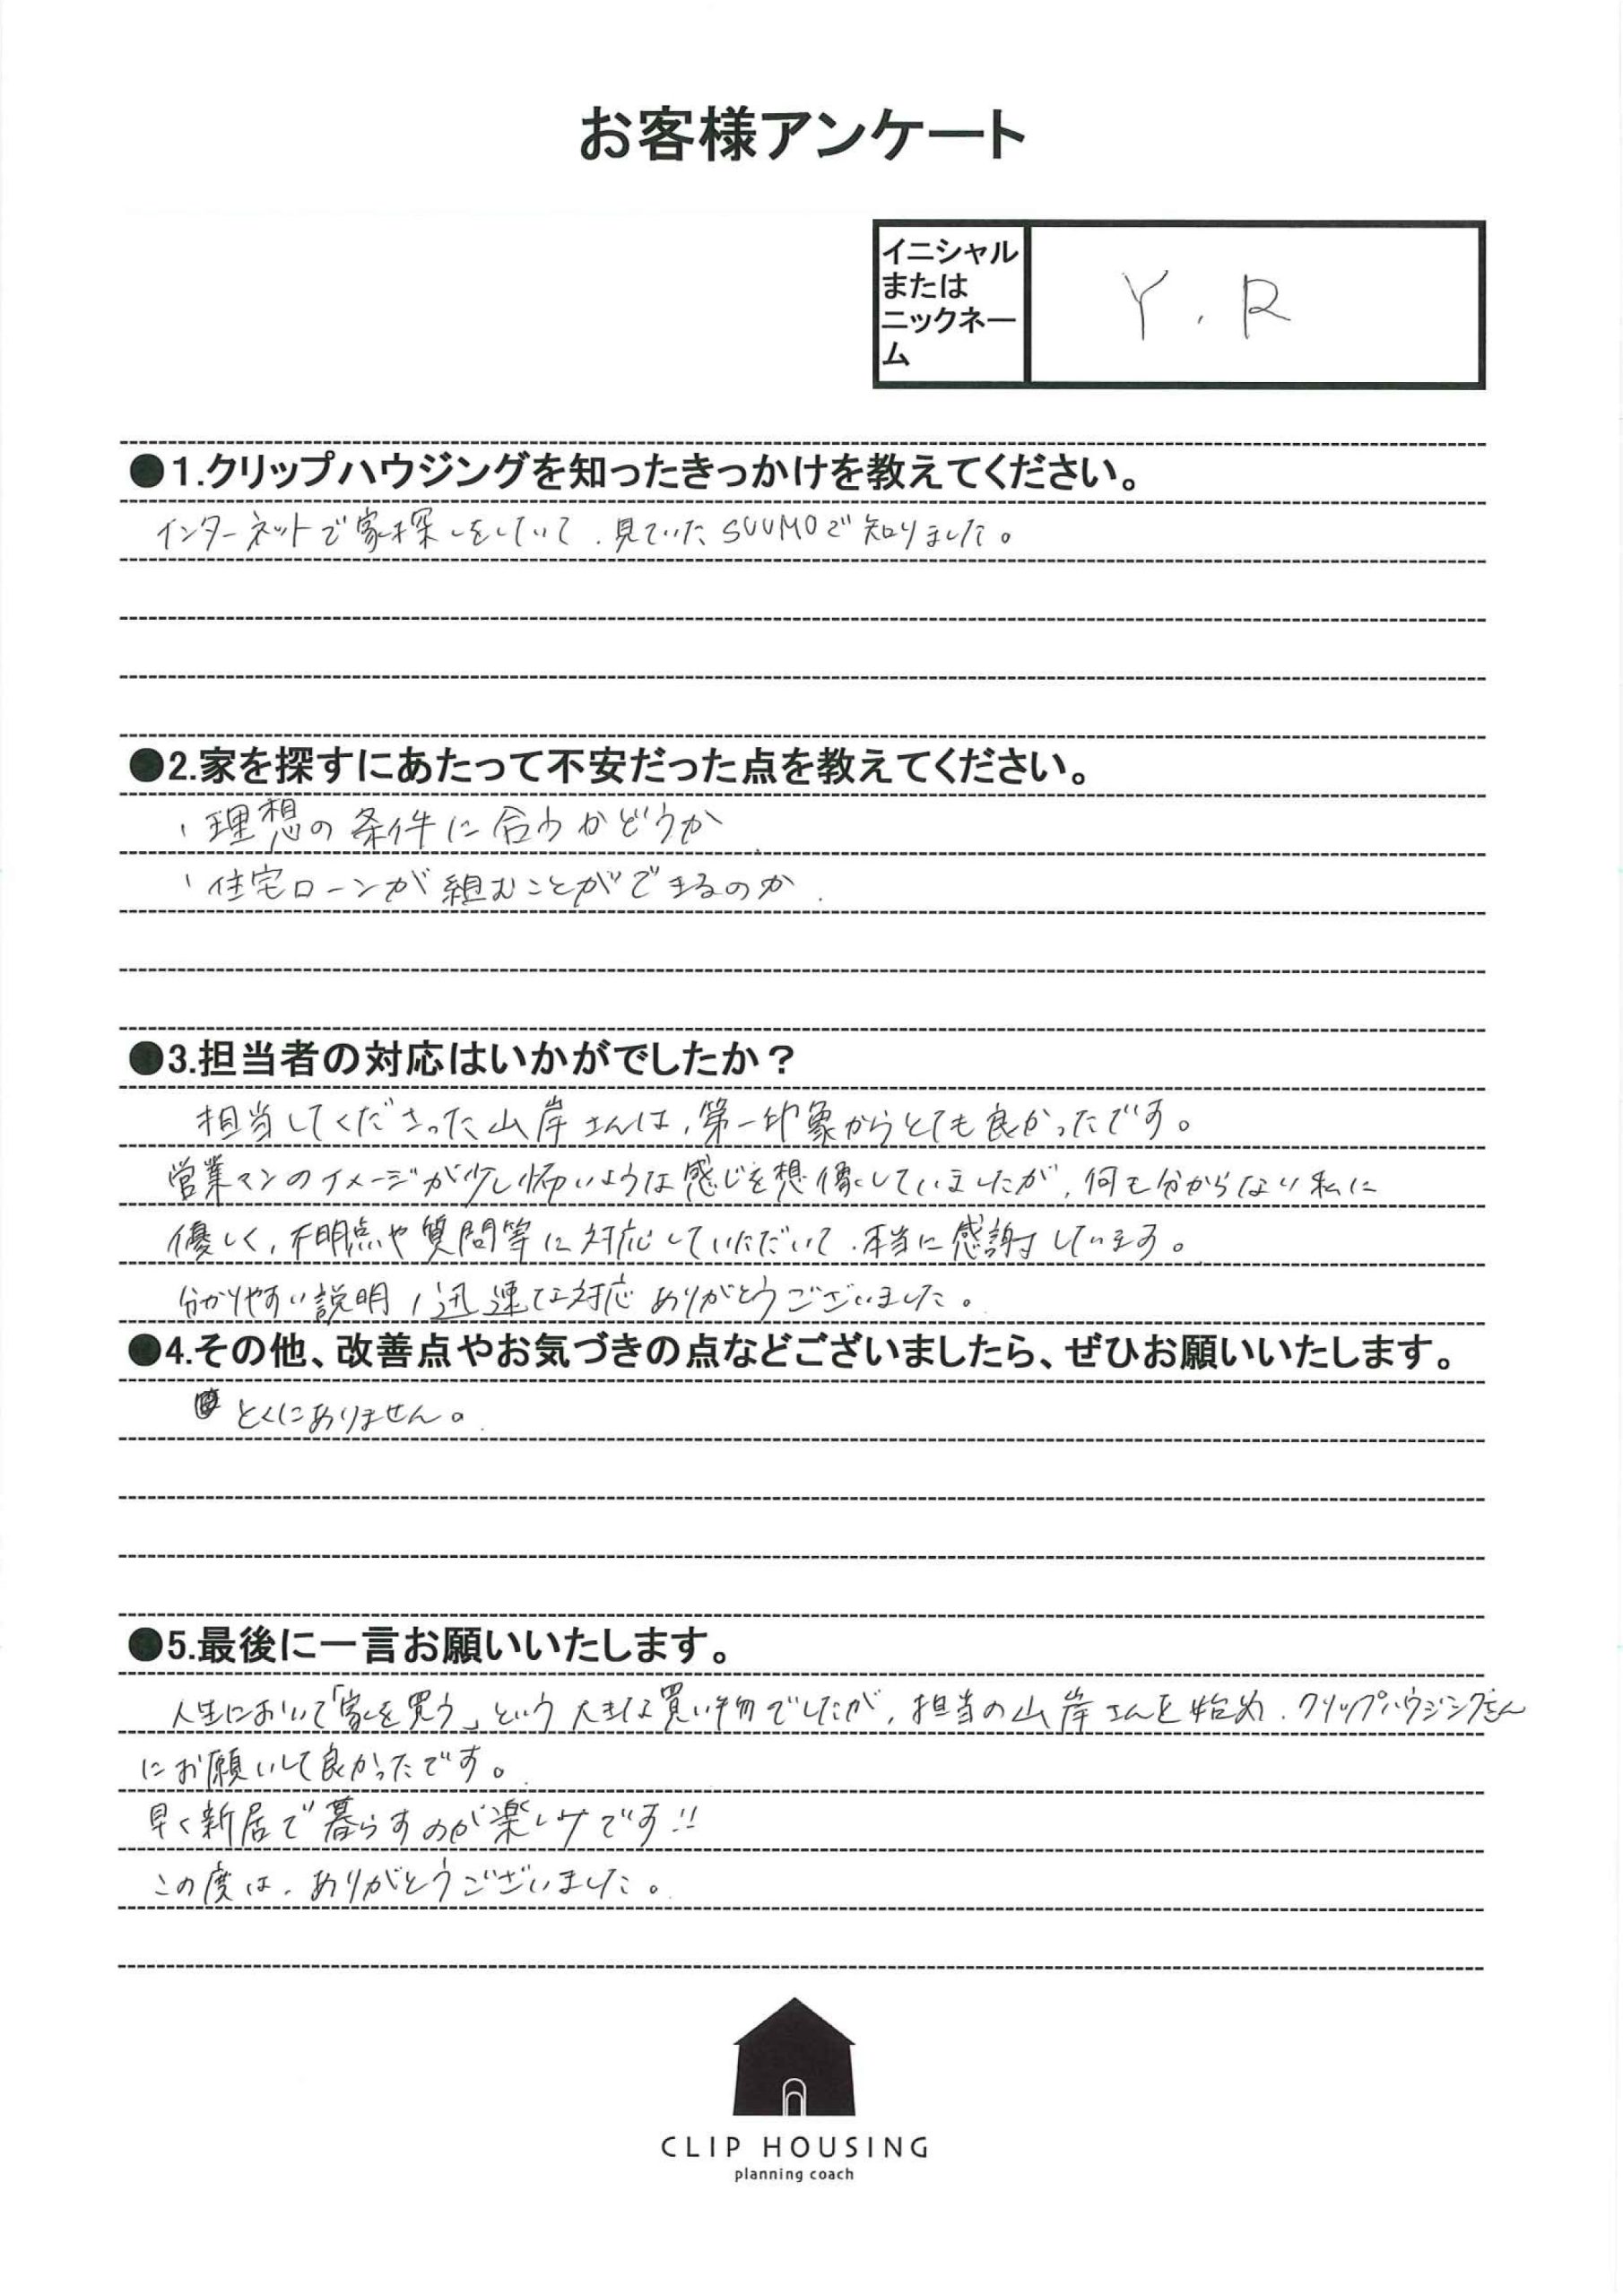 お客様アンケート
イニシャル
または
ニックネー
ム
Y.R
●1.クリップハウジングを知ったきっかけを教えてください。
インターネットで家探しをしていて、見ていたSUUMOで知りました。
●2.家を探すにあたって不安だった点を教えてください。
・理想の条件に合うかどうか
・住宅ローンが組むことができるのか
●3.担当者の対応はいかがでしたか？
担当してくださった山岸さんは、第一印象からとても良かったです。
営業マンのイメージが少し怖いような感じを想像していましたが、何も分からない私に
優しく、不明点や質問等に対応していただいて、本当に感謝しています。
分かりやすい説明、迅速な対応ありがとうございました。
●4.その他、改善点やお気づきの点などございましたら、ぜひお願いいたします。
とくにありません。
●5.最後に一言お願いいたします。
人生において「家を買う」という大きな買い物でしたが、担当の山岸さんを始め、クリップハウジングさん
にお願いして良かったです。
早く新居で暮らすのが楽しみです!!
この度は、ありがとうございました。
CLIP HOUSING
planning coach